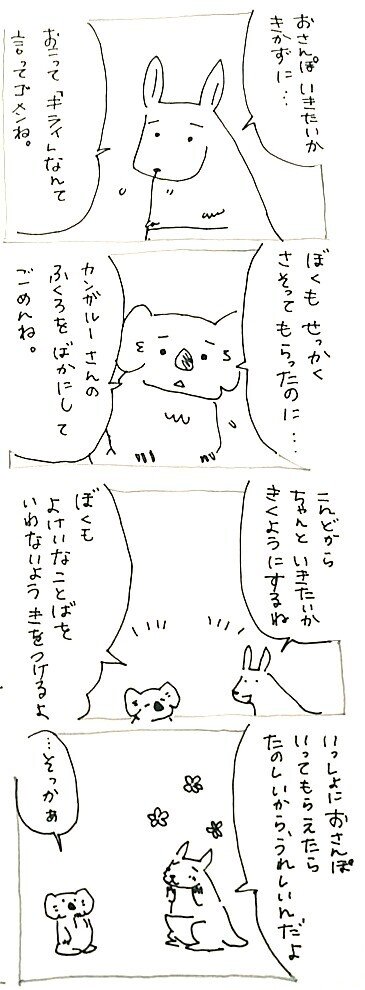 おさんぽ いきたいか
きかずに…
おこって「キライ」なんて
言ってゴメンね。
ぼくも せっかく
さそって もらったのに…
カンガルーさんの
ふくろを ばかにして
ごめんね。
こんどから
ちゃんと いきたいか
きくようにするね
ぼくも
よけいな ことばを
いわないよう きをつけるよ
いっしょに おさんぽ
いってもらえたら
たのしいから、うれしいんだよ
…そっかぁ